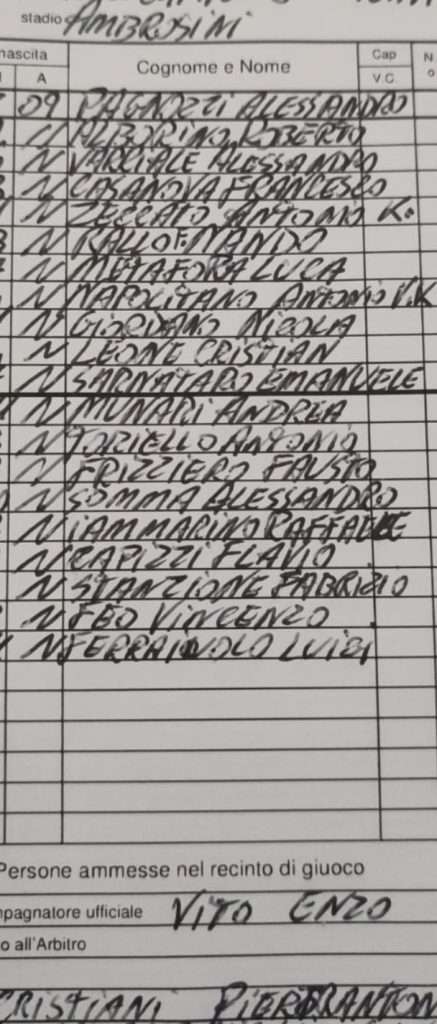 stadio AMBROSINI
nascita Cognome e Nome Cap N
A V.C. o
09 PAGNOZZI ALESSANDRO
N ALBORINO ROBERTO
N VARCIALE ALESSANDRO
N CASANOVA FRANCESCO
N ZECCATO ANTONIO K.
N RALLO
N METAFORA LUCA
N NAPOLITANO ANTONIO V.K
N GIORDANO NICOLA
N LEONE CRISTIAN
N SARNATARO EMANUELE
N MUNARI ANDREA
N TORIELLO ANTONIO
N FRIZZIERO FAUSTO
N SOMMA ALESSANDRO
N IAMMARINO RAFFAELE
N CAPIZZI FLAVIO
N STANZIONE FABRIZIO
N FEO VINCENZO
N FERRAIUOLO LUIGI
Persone ammesse nel recinto di giuoco
mpagnatore ufficiale VITO ENZO
o all'Arbitro
CRISTIANI